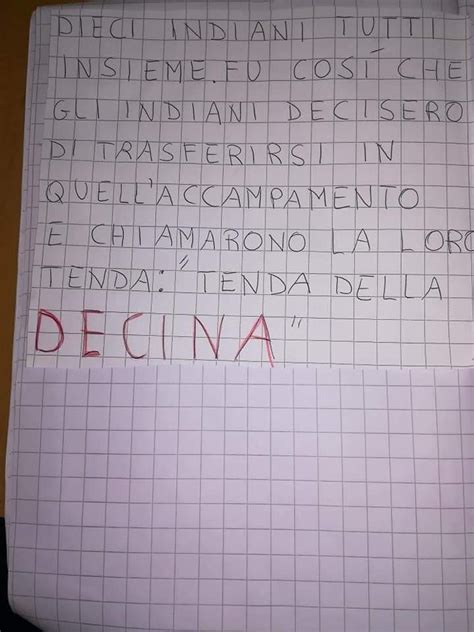 DIECI INDIANI TUTTI
INSIEME. FU COSÍ CHE
GLI INDIANI DECISERO
DI TRASFERIRSI IN
QUELL'ACCAMPAMENTO
E CHIAMARONO LA LORO
TENDA: "TENDA DELLA
DECINA"